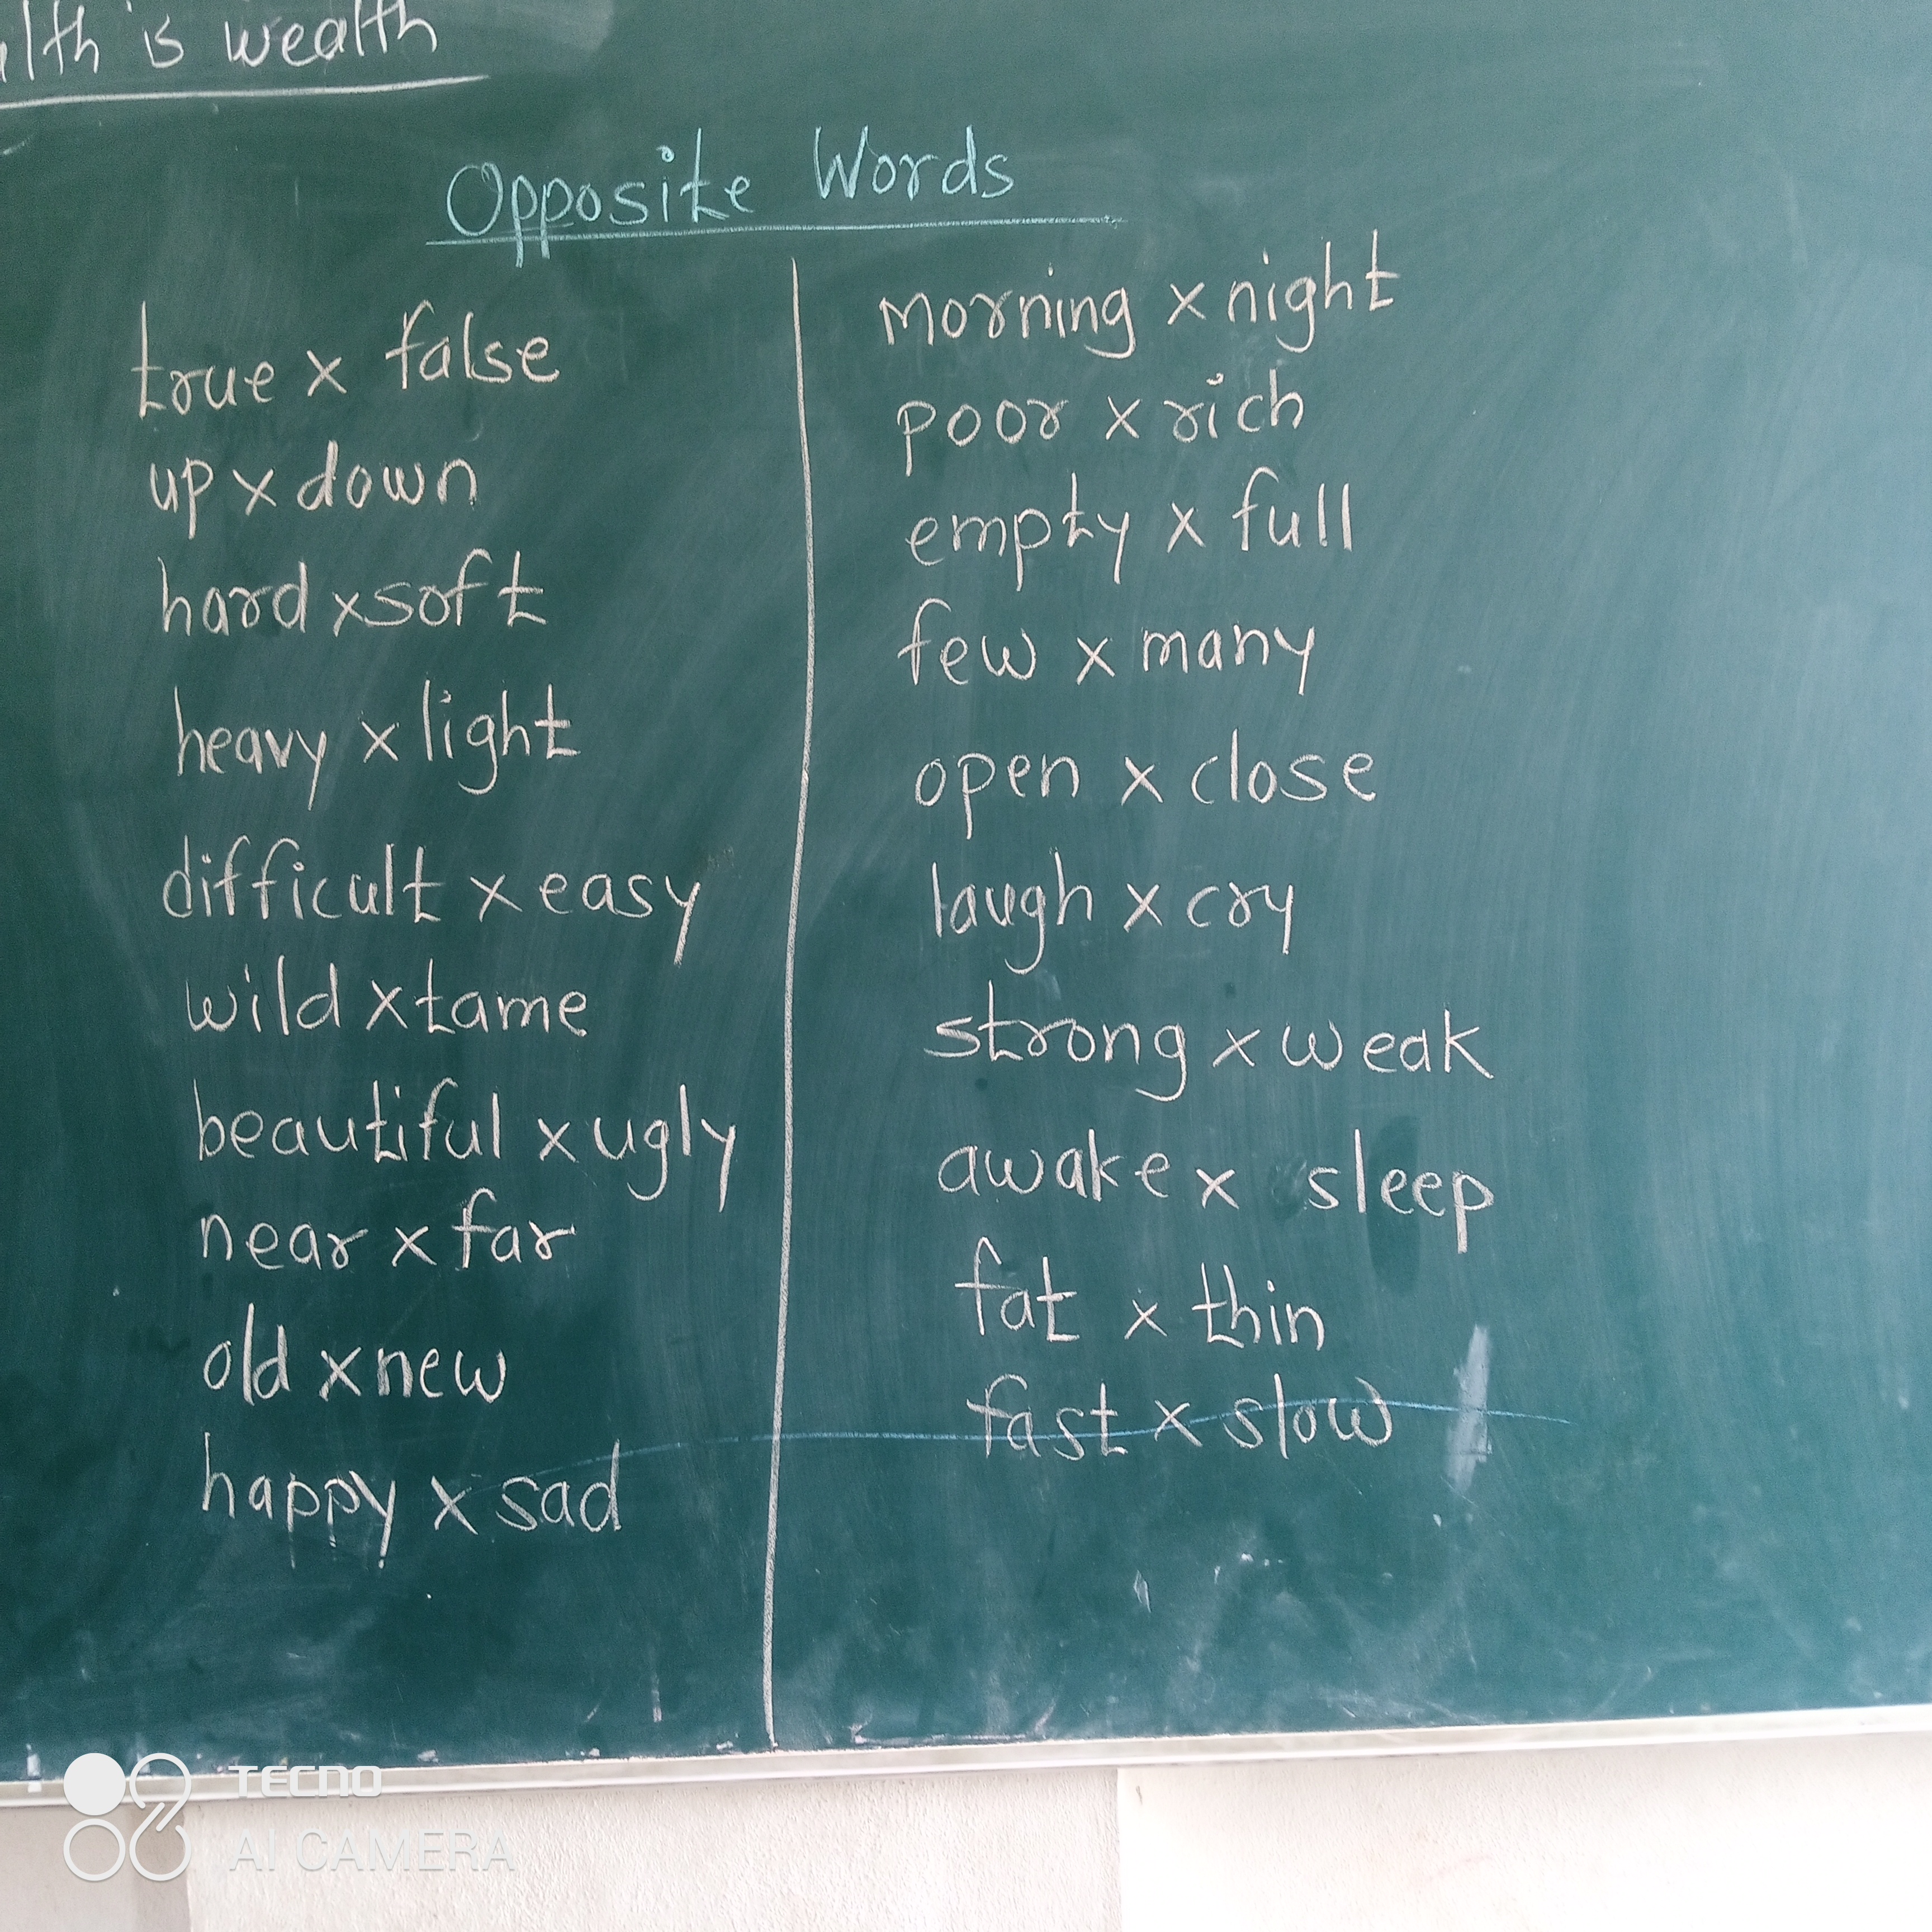 is wealth
Opposite Words
true x false
up x down
hard x soft
heavy x light
difficult x easy
wild x tame
beautiful x ugly
near x far
old x new
happy x sad
morning x night
poor x rich
empty x full
few x many
open x close
laugh x cry
strong x weak
awake x sleep
fat x thin
fast x slow
TECNO
AI CAMERA